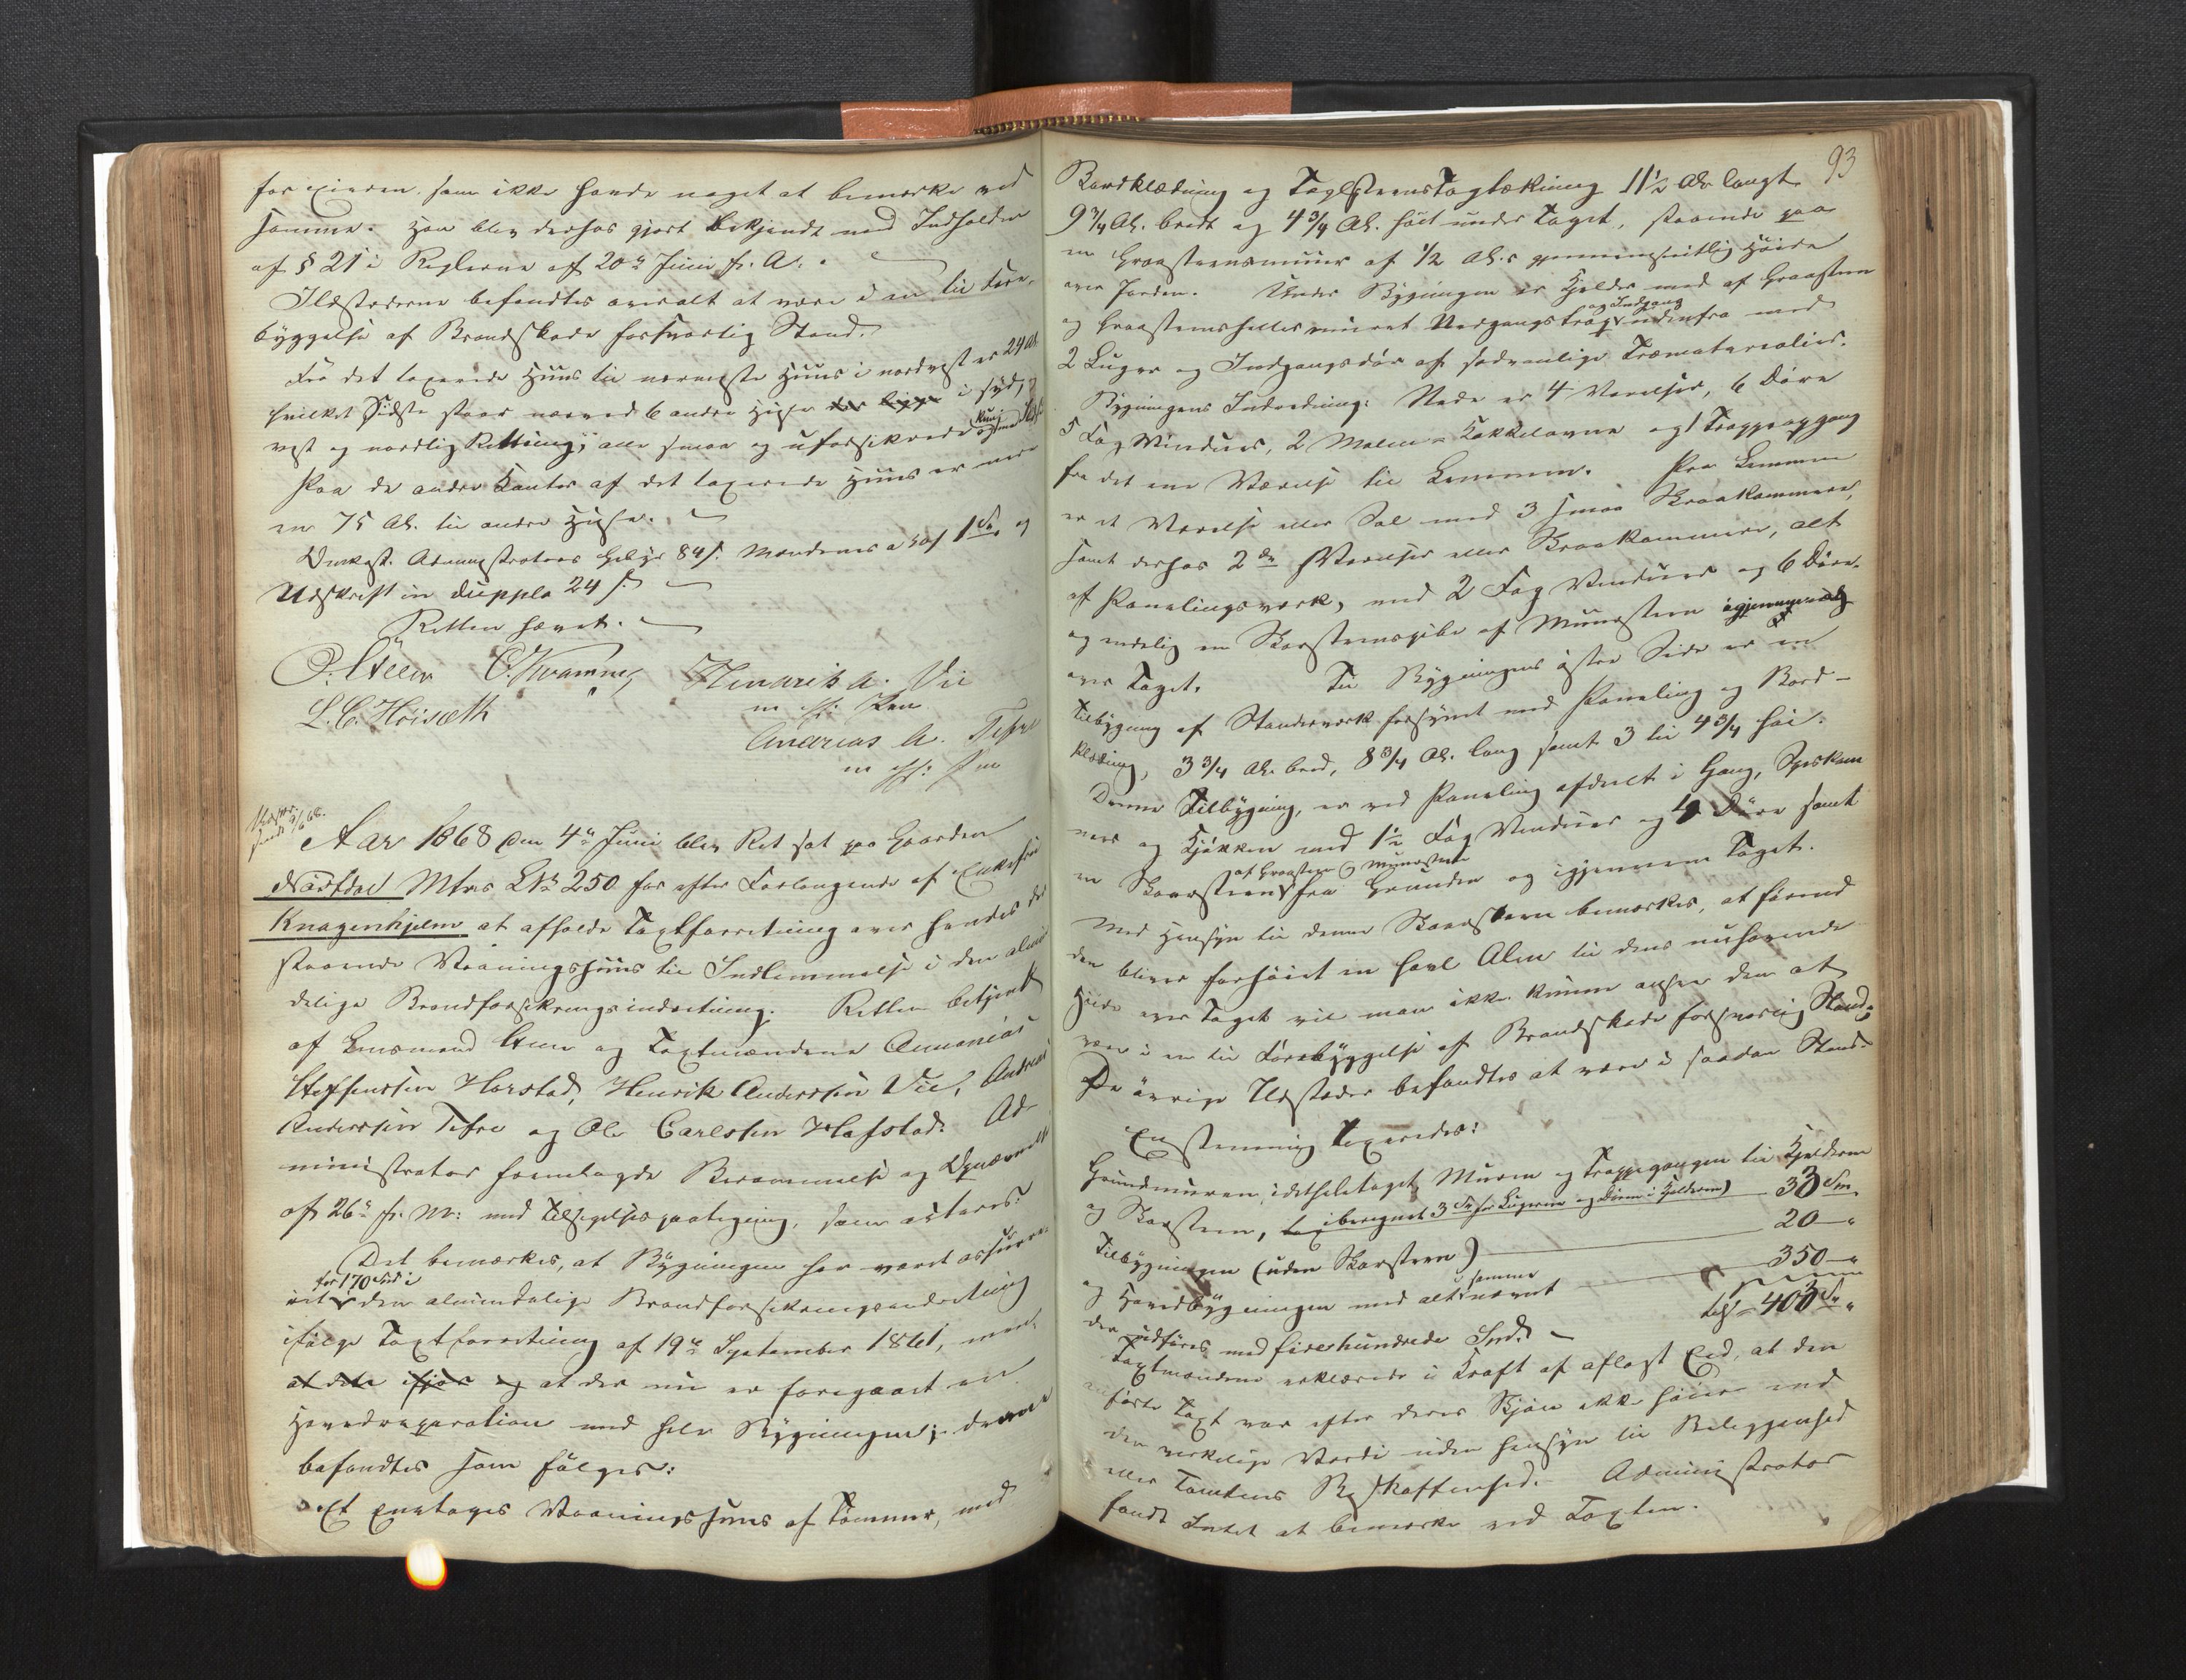 for Eieren som ikke havde noget at bemærke ved
samme. Han blev derhos gjort bekjendt med Indholdet
af § 21 i Reglerne af 20de Juni f. A.
Ildstederne befandtes overalt at være i en til Fore-
byggelse af Brandskade forsvarlig Stand.
Fra det taxerede Huus til nærmeste Huus i nordvest er 24 Al.
hvilket Sidste staar nærved 6 andre Huse der ligge i syd,
vest og nordlig Retning, alle smaa og uforsikrede
Paa de andre Kanter af det taxerede Huus er mere
en 75 Al. til andre Huse.
Omkost. Administrators Gebyr 84 s. Mændenes a 30 s 1 Sp. og
Udskrift in duplo 24 s.
Retten hævet.
O. Steen O. Kvamme, Henrik A. Vie
L. C. Höisæth m. f. P.
Andreas A. Tefre
m. f. P.
9/6 68.
Aar 1868 den 4de Juni blev Ret sat paa Gaarden
Nautdal Mtrs LNr 250 for efter Forlangende af Enkefru
Knagenhjelm at afholde Taxtforretning over hendes der
staaende Vaaningshuus til Indlemmelse i den almin
delige Brandforsikringsindretning. Retten betjent
af Lensmand Steen og Taxtmændene Annanias
Steffensen Horstad, Henrik Anderssen Vie, Andreas
Anderssen Tefre og Ole Carlssen Hafstad. Ad-
ministrator fremlagde Berammelse og Opnævnelse
af 26de f. M. med Tilsigelsespaategning, som acteres:
Det bemærkes, at Bygningen har været assure-
for 170 Spd i
ret den almindelige Brandforsikringsindretning
ifølge Taxtforretning af 19de September 1861, men
at dette ifjor og at der nu er foregaaet en
Hovedreparation med hele Bygningen; denne
befandtes som følger:
Et Eenetages Vaaningshuus af Tømmer, med
93
Bordklædning og Taglsteenstagtækning 11½ Al. langt
9¾ Al. bredt og 4¾ Al. høit under Taget, staaende paa
en Graasteensmuur af ½ Al.s gjennemsnitlig Høide
over Jorden. Under Bygningen er Kjelder med af Graasteen
og Indgang
og Graasteenheller muret Nedgangstrap udenfra med
2 Luger og Indgangsdør af sædvanlige Træmaterialier.
Bygningens Indredning: Nede er 4 Værelser, 6 Døre
5 Fag Vinduer, 2 Malm-Kakkelovne og 1 Trappeopgang
fra det ene Værelse til Lemmen. Paa Lemmen
er et Værelse eller Sal med 3 smaa Skraakammere,
samt derhos 2de Værelser eller Skraakammere, alt
af Panelingsværk, med 2 Fag Vinduer og 6 Døre.
og endelig en Skorsteenspibe af Muursteen igjennem
over Taget. Til Bygningens østre Side er en
Tilbygning af Standerværk forsynet med Paneling og Bord-
klædning, 3¾ Al. bred, 8¾ Al. lang samt 3 til 4¾ høi.
Denne Tilbygning, er ved Paneling afdeelt i Gang, Spiskam
mer og Kjøkken med 1½ Fag Vinduer og 4 Døre samt
af Graasteen og Muursteen
en Skorsteen fra Grunden og igjennem Taget.
Med Hensyn til denne Skorsteen bemærkes, at førend
den bliver forhøiet en halv Alen til dens nuhavende
Høide over Taget vil man ikke kunne ansee den at
være i en til Forebyggelse af Brandskade forsvarlig Stand.
De øvrige Ildsteder befandtes at være i saadan Stand.
Eenstemmig taxeredes:
Grundmuren, idethele taget, Muren og Trappegangen til Kjelderen
og Skorsteen, iberegnet 3 Sp for Lugerne og Døren i Kjelderen) 33 Spd
Tilbygningen (uden Skorsteen) 20 –
i samme
og Hovedbygningen med alt nævnt 350 –
der udføres med firehundrede Spd. – tils = 403 Sp.
Taxtmændene erklærede i Kraft af aflagt Eed, at den
anførte Taxt var efter deres Skjøn ikke høiere end
den virkelige Værdi uden Hensyn til Beliggenhed
eller Tomtens Beskaffenhed. Administrator
fandt Intet at bemærke ved Taxten.